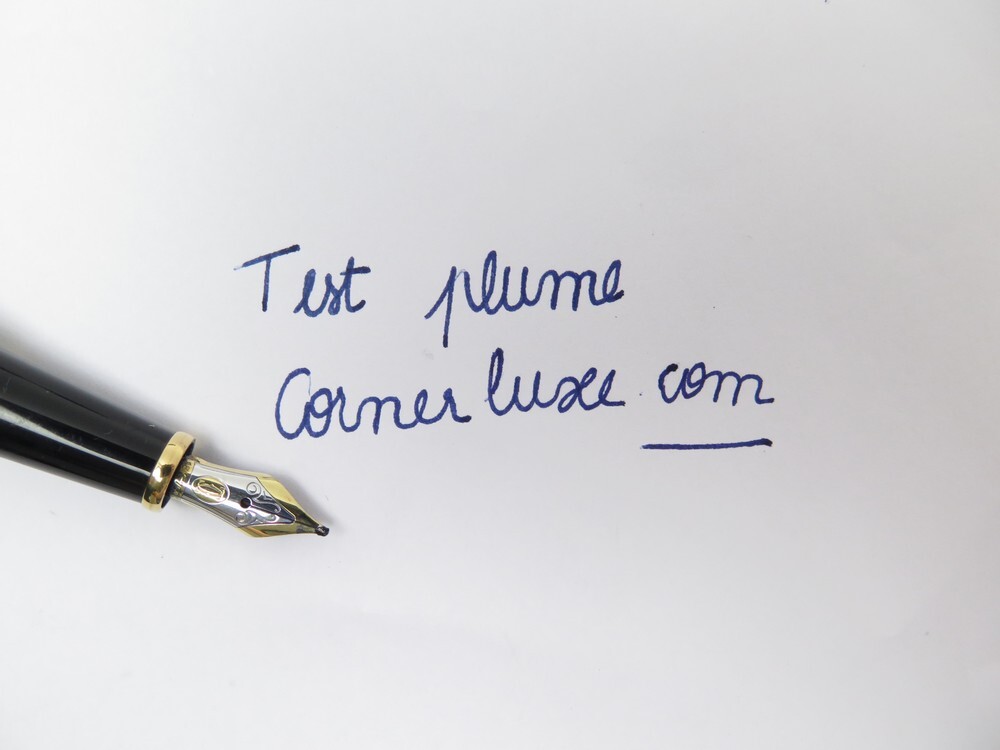 Test plume
Cornerluxe.com